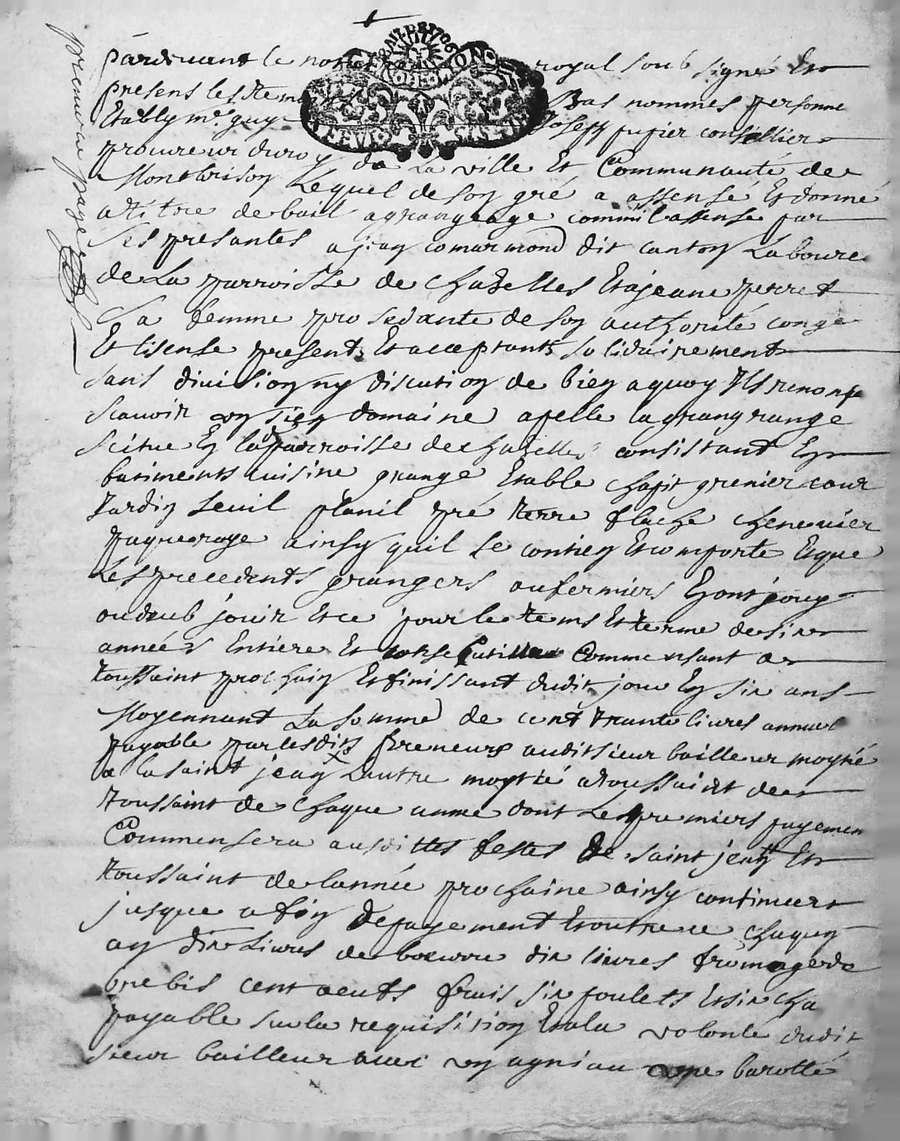 premiere page
pardevant le notaire royal soub signé Et
presens les temoins Bas nommes personne
Etably mr guy Joseph pupier conseillier
procureur du roy de La ville Et Communauté de
Montbrison Lequel de son gré a assensé Et donné
a titre de bail a grangeage comme il assense par
ses presantes a jean comarmond dit canton Laboureur
de La parroisse de chazelles Et a jeane perret
Sa femme prosedante de soy authorité conge
Et lisense presents Et acceptants solidairement
sans division ny discution de bien a quoy Ils renonse
scavoir un sien domaine apelle la grangrange
scitue En la parroisse de chazelles consistant En
batiments cuisine grange Etable chapit grenier cour
Jardin seuil planil pré terre flache chenevier
paquerage ainsy quil se contien Et comporte Et que
Les precedents grangers ou fermiers En ont jouy
ou deub jouir Et ce pour le tems Et terme de six
années Entiere Et consequtive Commensant a
toussaint prochain Et finissant dudit jour En six ans
Moyennant La somme de cent trante livres annuel
payable par lesdits preneurs audit sieur bailleur moytié
a la saint jean Lautre moytié a toussaint de
toussaint de chaque anne dont Le premiers payemen
Commensera ausdittes festes de saint jean Et
toussaint de lannée prochaine ainsy continuer
jusque a fin de payement Et outre ce chaqun
an dix Livres de beurre dix livres fromage de
brebis cent oeufs frais six poulets Et six cha
payable sur la requisition Et a la volonte dudit
sieur bailleur avec un agniau une barotté